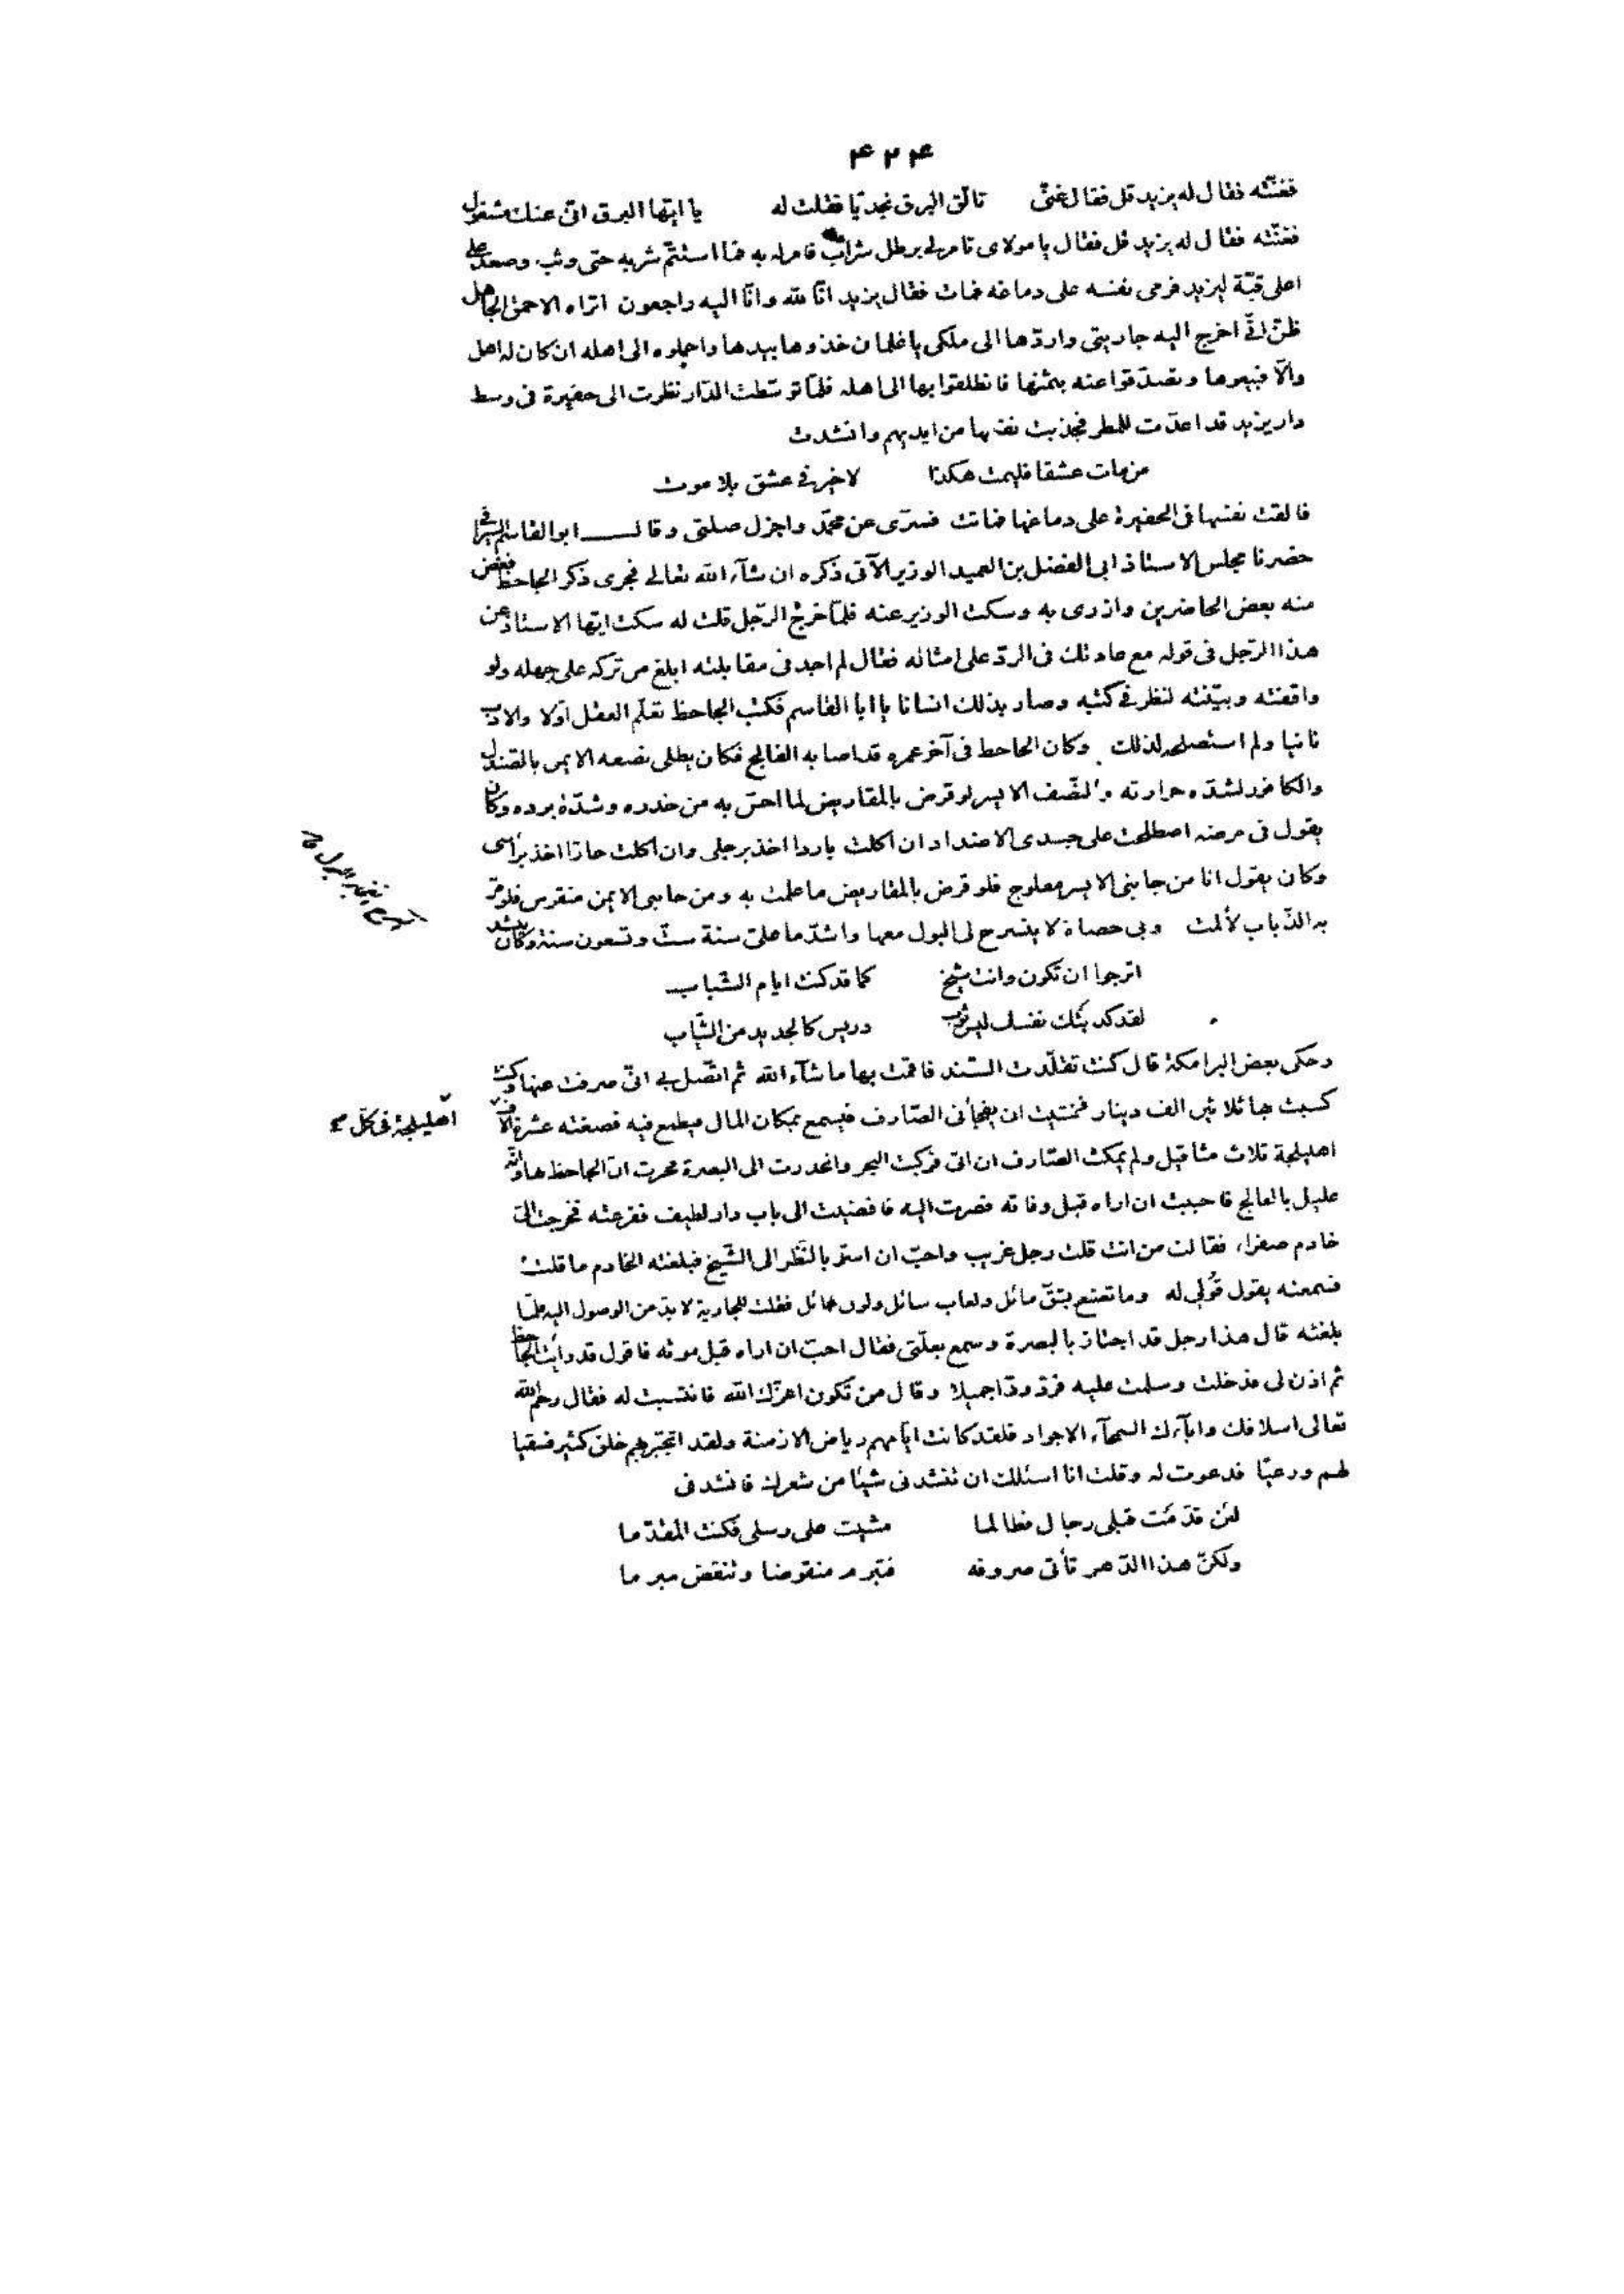 ۴۲۴
فغنّته فقال له يزيد قل فقال غنّى تالق البرق نجديّا فقلت له يا ايّها البرق انّى عنك مشغول
فغنّته فقال له يزيد قل فقال يا مولاى تامر لى برطل شراب فامر له به فما استتمّ شربه حتى وثب وصعد على
اعلى قبّة ليزيد فرمى نفسه على دماغه فمات فقال يزيد انّا للّه وانّا اليه راجعون اتراه الاحمق الجاهل
ظنّ انّى اخرج اليه جاريتى واردّها الى ملكى يا غلمان خذوها بيدها واحملوه الى اهله ان كان له اهل
والّا فبيعوها وتصدّقوا عنه بثمنها فانطلقوا بها الى اهله فلمّا توسّطت الدّار نظرت الى حفيرة فى وسط
دار يزيد قد اعدّت للمطر فجذبت نفسها من ايديهم وانشدت
من مات عشقا فليمت هكذا لا خير فى عشق بلا موت
فالقت نفسها فى الحفيرة على دماغها فماتت فسرّى عن محمّد واجزل صلتى وقال ابو القاسم السيرافى
حضرنا مجلس الاستاذ ابى الفضل بن العميد الوزير الآتى ذكره ان شآء اللّه تعالى فجرى ذكر الجاحظ فغض
منه بعض الحاضرين وازرى به وسكت الوزير عنه فلمّا خرج الرّجل قلت له سكت ايّها الاستاذ عن
هذا الرّجل فى قوله مع عادتك فى الردّ على امثاله فقال لم اجد فى مقابلته ابلغ من تركه على جهله ولو
واقفته وبيّنته لنظر فى كتبه وصار بذلك انسانا يا ابا القاسم فكتب الجاحظ تعلّم العقل اوّلا والادب
ثانيا ولم استصلحه لذلك وكان الجاحظ فى آخر عمره قد اصابه الفالج فكان يطلى نصفه الايمن بالصندل
والكافور لشدّة حرارته والنّصف الايسر لو قرض بالمقاريض لما احسّ به من خدره وشدّة برده وكان
يقول فى مرضه اصطلحت على جسدى الاضداد ان اكلت باردا اخذ برجلى وان اكلت حارّا اخذ برأسى
وكان يقول انا من جانبى الايسر مفلوج فلو قرض بالمقاريض ما علمت به ومن جانبى الايمن منقرس فلو مرّ
به الذّباب لألمت وبى حصاة لا ينسرح لى البول معها واشدّ ما علىّ سنة ستّ وتسعون سنة وكان ينشد
اترجوا ان تكون وانت شيخ كما قد كنت ايام الشّباب
لقد كذبتك نفسك ليس ثوب دريس كالجديد من الثّياب
وحكى بعض البرامكة قال كنت تقلّدت السّند فاقمت بها ما شآء اللّه ثم اتّصل بى انّى صرفت عنها وكنت
كسبت بها ثلاثين الف دينار فخشيت ان يفجأنى الصّارف فيسمع بمكان المال فيطمع فيه فصغته عشرة آلاف
اهليلجة فى كل
اهليلجة ثلاث مثاقيل ولم يمكث الصّارف ان اتى فركبت البحر وانحدرت الى البصرة فخبرت انّ الجاحظ بها وانّه
عليل بالفالج فاحببت ان اراه قبل وفاته فصرت اليه فافضيت الى باب دار لطيف فقرعته فخرجت الىّ
خادم صفراء فقالت من انت قلت رجل غريب واحبّ ان اسرّ بالنّظر الى الشّيخ فبلغته الخادم ما قلت
فسمعته يقول قولى له وما تصنع بشقّ مائل ولعاب سائل ولون حائل فقلت للجارية لا بدّ من الوصول اليه فلمّا
بلغته قال هذا رجل قد اجتاز بالبصرة وسمع بعلّتى فقال احبّ ان اراه قبل موته فاقول قد رأيت الجاحظ
ثم اذن لى فدخلت وسلمت عليه فردّ ردّا جميلا وقال من تكون اعزّك اللّه فانتسبت له فقال رحم اللّه
تعالى اسلافك وابآءك السمحآء الاجواد فلقد كانت ايّامهم رياض الازمنة ولقد انجبر بهم خلق كثير فسقيا
لهم ورعيّا فدعوت له وقلت انا اسئلك ان تنشدنى شيئا من شعرك فانشدنى
لئن قدّمت قبلى رجال فطالما مشيت على رسلى فكنت المقدّما
ولكنّ هذا الدّهر تأتى صروفه فتبرم منقوضا وتنقض مبرما